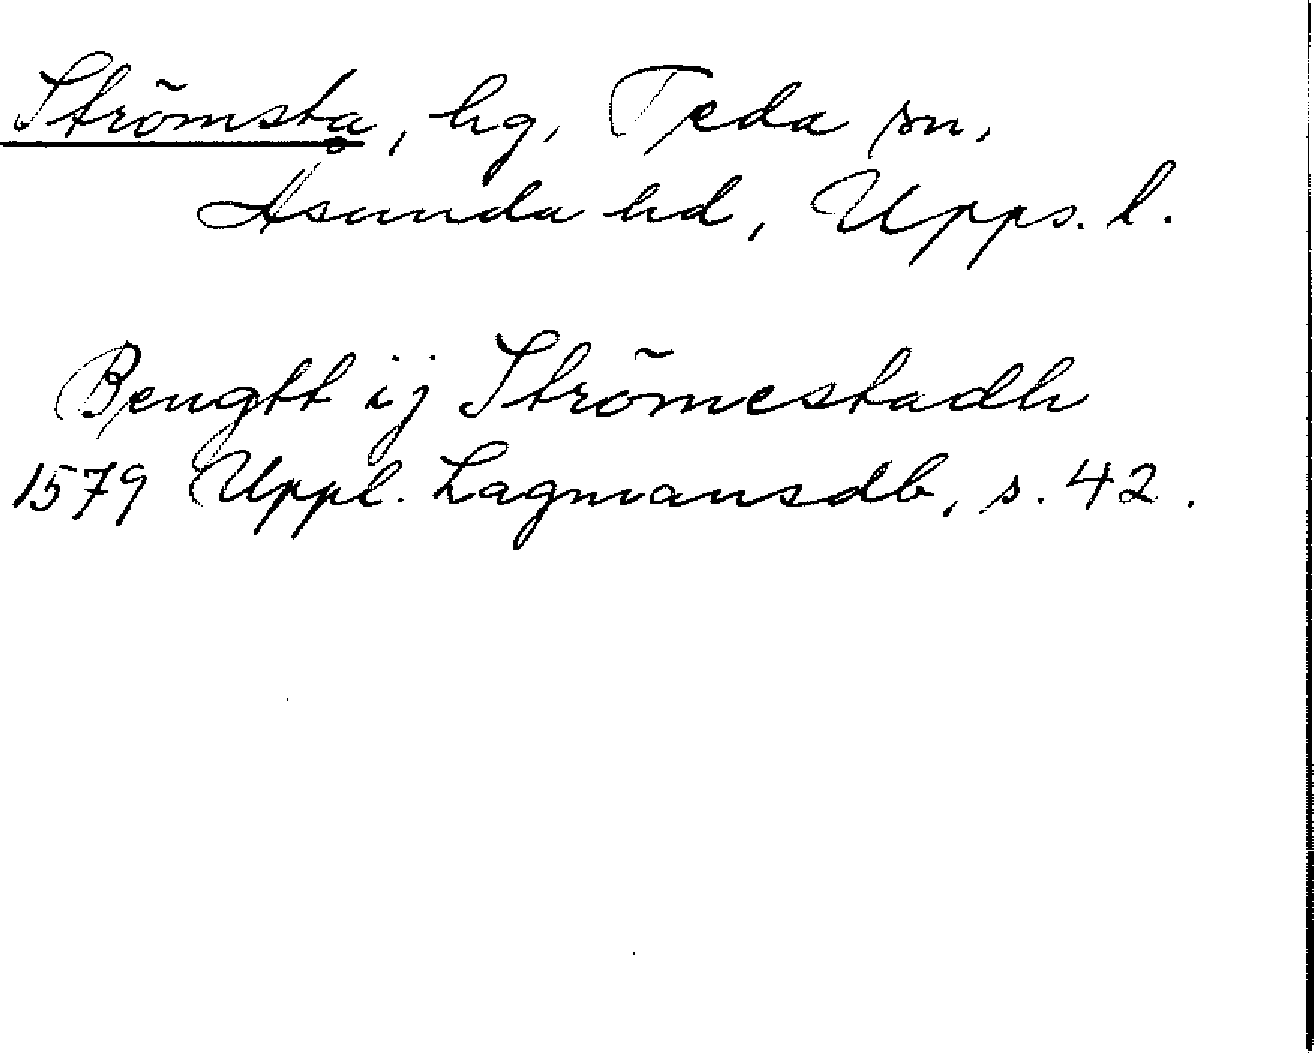 Strömsta, hg, Teda sn,
Åsunda hd, Upps. l.
Bengtt ij Strömestadh
1579 Uppl. Lagmansdb, s. 42.